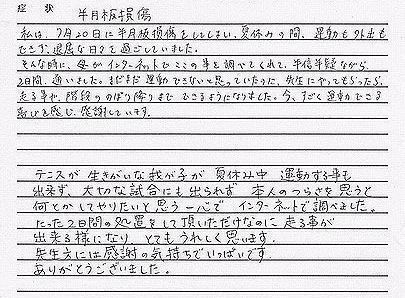 症状　半月板損傷
私は、7月20日に半月板損傷をしてしまい、夏休みの間、運動も外出も
できず、退屈な日々を過ごしていました。
そんな時に、母がインターネットでここの事を調べてくれて、半信半疑ながら、
2日間、通いました。まだまだ運動できないと思っていたのに、先生にやってもらったら、
走る事や、階段ののぼり降りまでできるようになりました。今、すごく運動できる
喜びを感じ、感謝しています。
テニスが生きがいな我が子が夏休み中 運動する事も
出来ず、大切な試合にも出られず 本人のつらさを思うと
何とかしてやりたいと思う一心で インターネットで調べました。
たった2日間の処置をして頂いただけなのに 走る事が
出来る様になり、とてもうれしく思います。
先生方には感謝の気持ちでいっぱいです。
ありがとうございました。